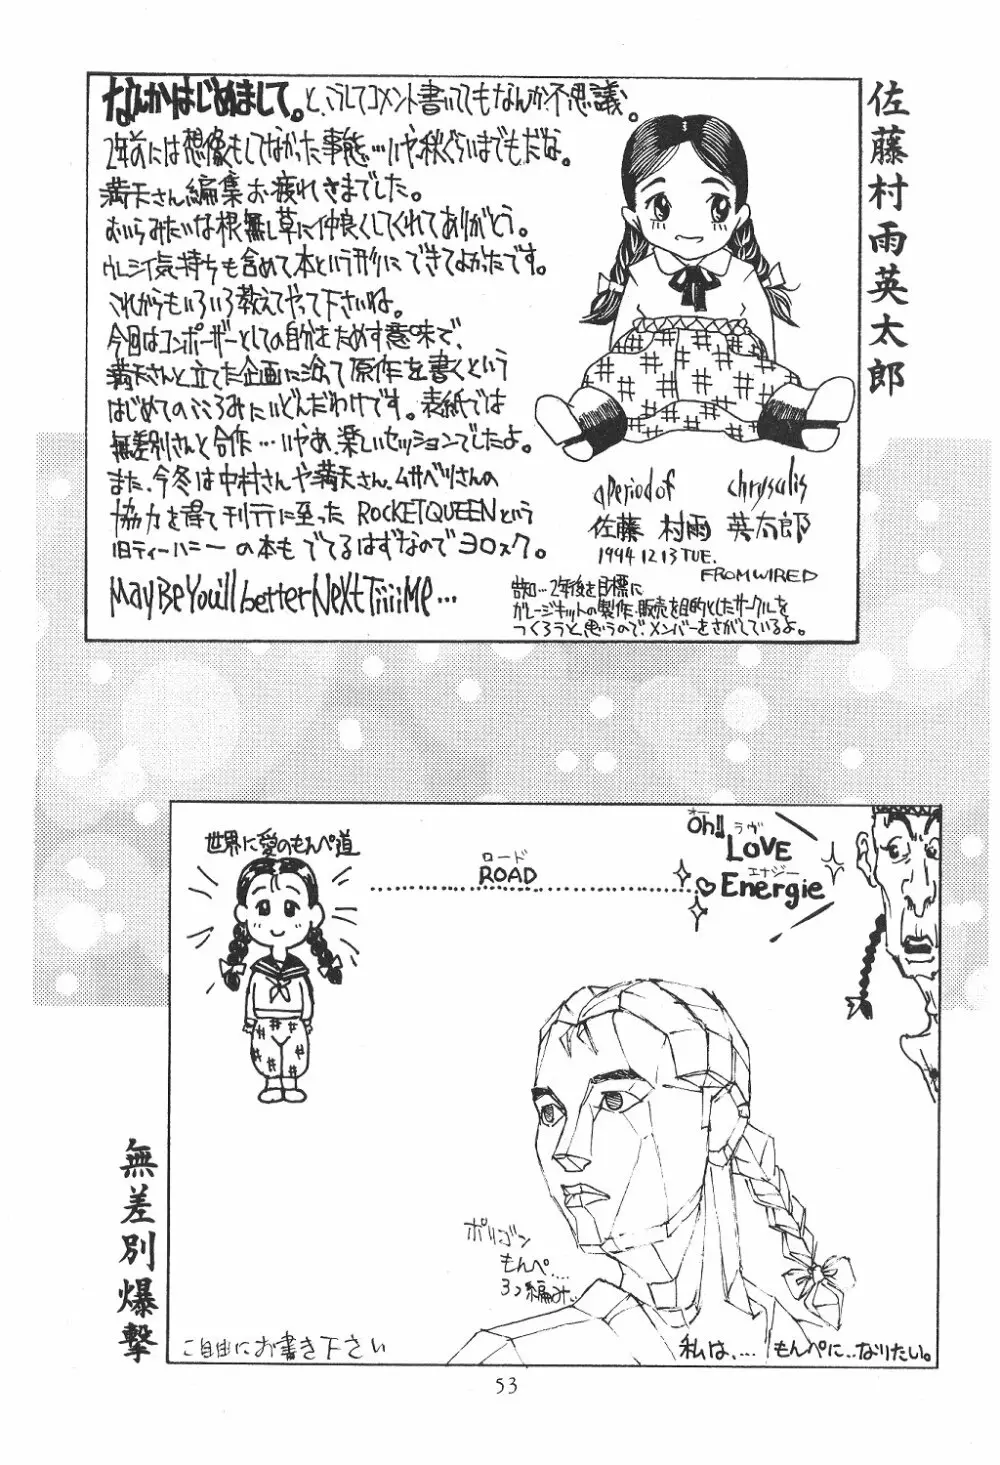 佐藤村雨英太郎
なんかはじめまして。と、こうしてコメント書いててもなんか不思議。
2年前には想像もしてなかった事態…いや秋ぐらいまでもだな。
満天さん編集お疲れさまでした。
むいらみたいな根無し草に仲良くしてくれてありがとう。
ウレシイ気持ちも含めて本という形にできてよかったです。
これからもいろいろ教えてやって下さいね。
今回はコンポーザーとしての自分をためす意味で、
満天さんと立てた企画に沿って原作を書くという
はじめてのこころみにいどんだわけです。表紙では
無差別さんと合作…いやあ、楽しいセッションでしたよ。
また、今冬は中村さんや満天さん、ムサベツさんの
協力を得て刊行に至った ROCKETQUEENという
旧ティーハニーの本もでてるはずなのでヨロスク。
MayBeYou'll better NeXt TiiiiMe…
aperiodof chrysalis
佐藤 村雨 英太郎
1994 12 13 TUE.
FROMWIRED
告知…2年後を目標に
ガレージキットの製作、販売を目的としたサークルを
つくろうと思うので、メンバーをさがしているよ。
世界に愛のもんぺ道
ロード
ROAD
オー
Oh!!
ラヴ
LOVE
エナジー
♡Energie
ポリゴン
もんぺ…
3つ編み…
ご自由にお書き下さい
私は、… もんぺに…なりたい。
無差別爆撃
53